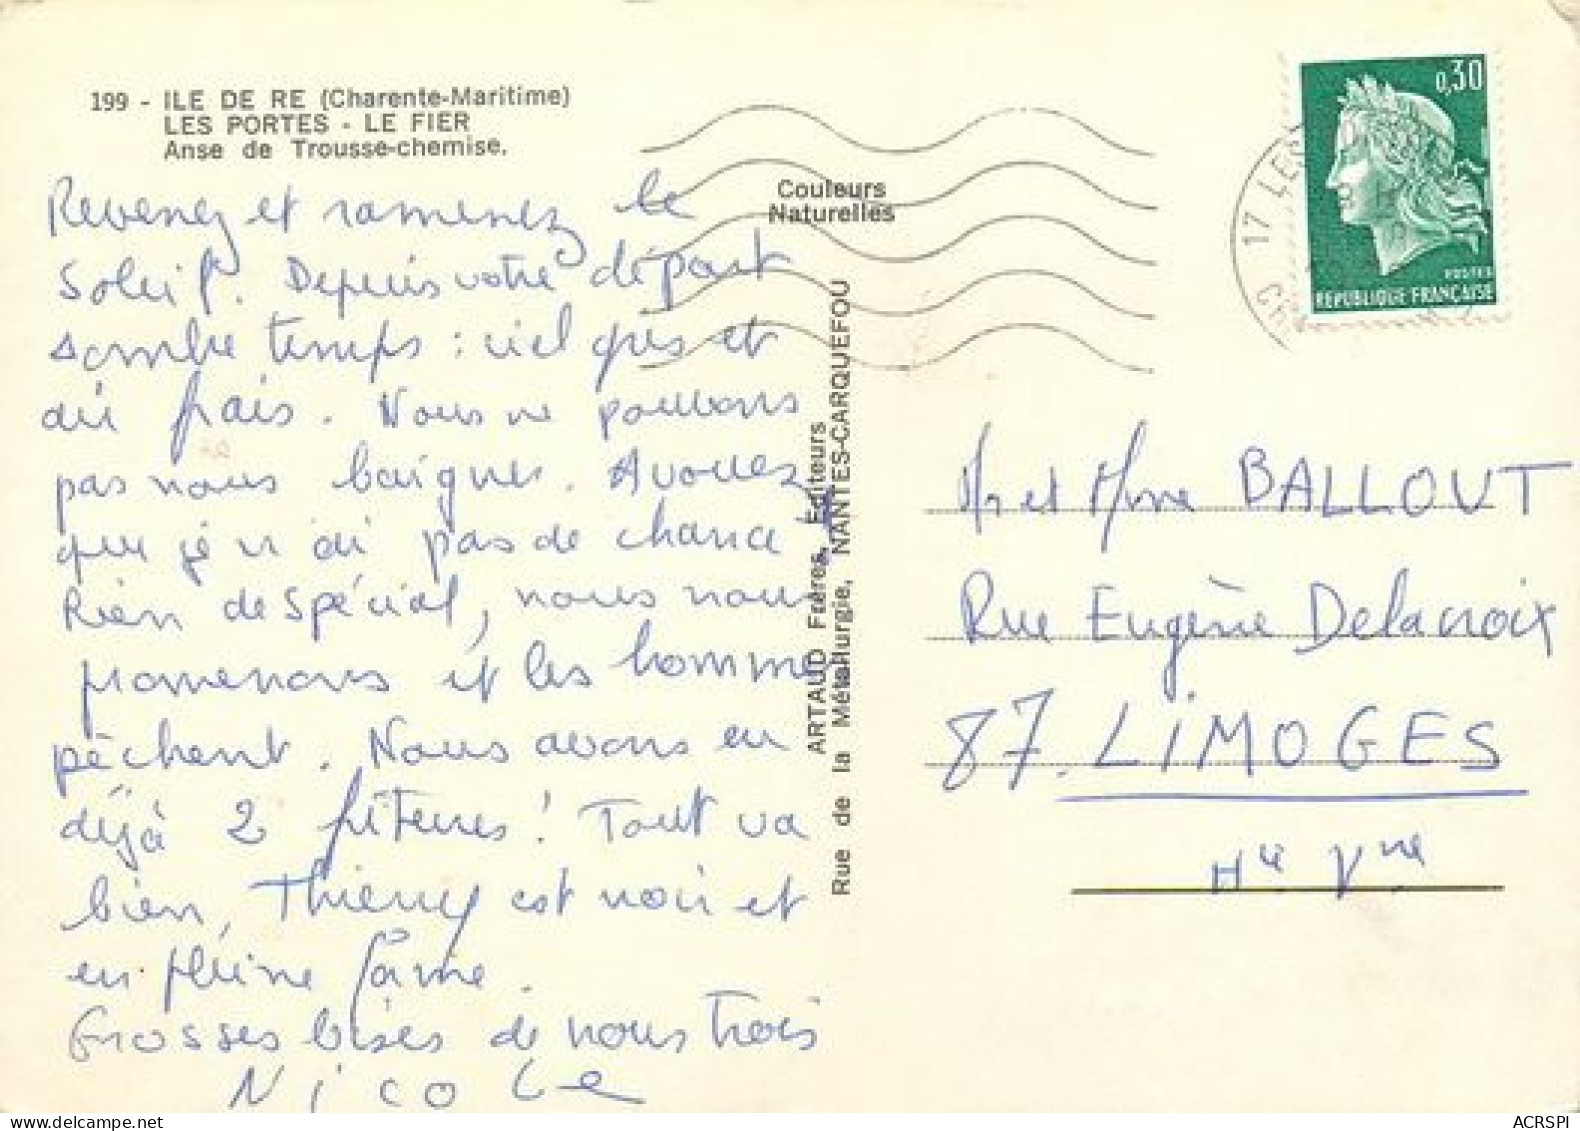 199 - ILE DE RE (Charente-Maritime)
LES PORTES - LE FIER
Anse de Trousse-chemise.
Couleurs
Naturelles
Revenez et ramenez le
Soleil. Depuis votre départ
sombre temps : ciel gris et
air frais. Nous ne pouvons
pas nous baigner. Avouez
que je n'ai pas de chance !
Rien de spécial, nous nous
promenons et les hommes
pêchent. Nous avons eu
déjà 2 fritures ! Tout va
bien, Thierry est noir et
en pleine forme.
Grosses bises de nous trois
Nicole
ARTAUD Frères, Editeurs
Rue de la Métallurgie, NANTES-CARQUEFOU
0,30
POSTES
REPUBLIQUE FRANÇAISE
17 LES
Mr et Mme BALLOUT
Rue Eugène Delacroix
87. LIMOGES
Hte Vne
ACRSPI